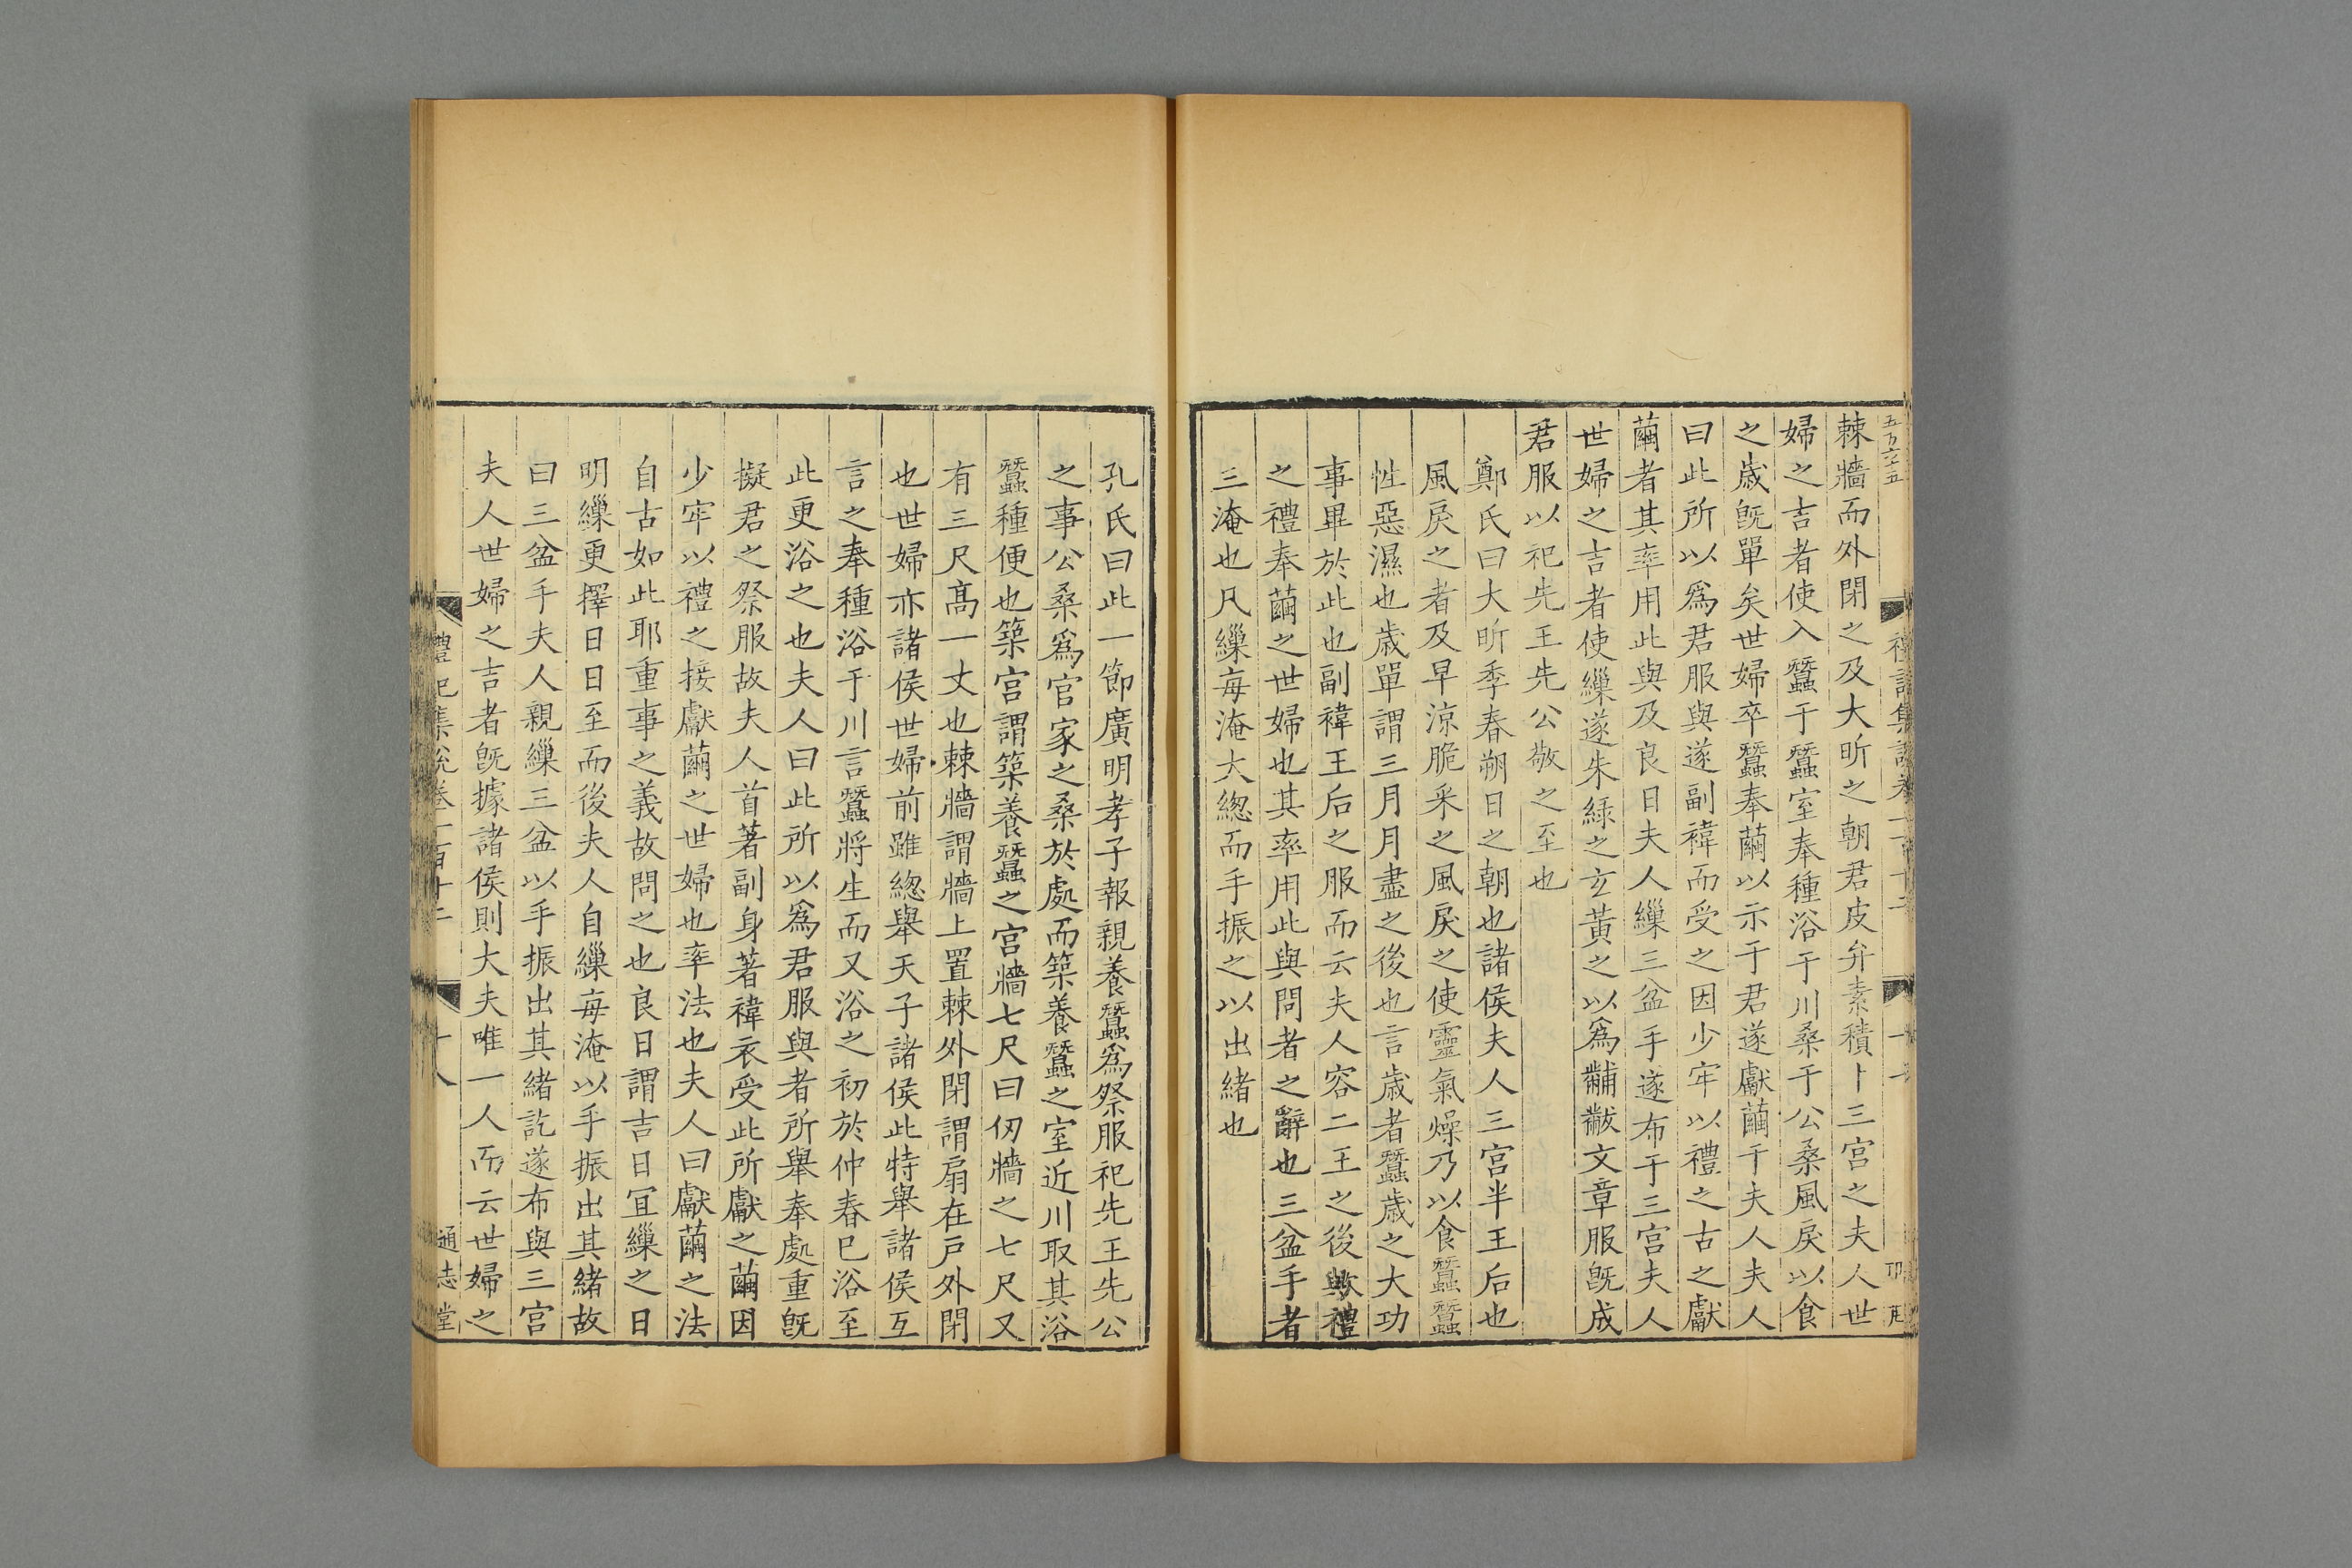 棘牆而外閉之及大昕之朝君皮弁素積卜三宫之夫人世
婦之吉者使入蠶于蠶室奉種浴于川桑于公桑風戾以食
之歲旣單矣世婦卒蠶奉繭以示于君遂獻繭于夫人夫人
曰此所以爲君服與遂副褘而受之因少牢以禮之古之獻
繭者其率用此與及良日夫人繅三盆手遂布于三宫夫人
世婦之吉者使繅遂朱綠之玄黃之以爲黼黻文章服旣成
君服以祀先王先公敬之至也
鄭氏曰大昕季春朔日之朝也諸侯夫人三宫半王后也
風戾之者及早涼脆采之風戾之使靈氣燥乃以食蠶蠶
性惡濕也歲單謂三月月盡之後也言歲者蠶歲之大功
事畢於此也副褘王后之服而云夫人容二王之後與禮
之禮奉繭之世婦也其率用此與問者之辭也三盆手者
三淹也凡繅每淹大緫而手振之以出緒也
孔氏曰此一節廣明孝子報親養蠶爲祭服祀先王先公
之事公桑爲官家之桑於處而築養蠶之室近川取其浴
蠶種便也築宫謂築養蠶之宫牆七尺曰仞牆之七尺又
有三尺髙一丈也棘牆謂牆上置棘外閉謂扇在戸外閉
也世婦亦諸侯世婦前雖緫舉天子諸侯此特舉諸侯互
言之奉種浴于川言蠶將生而又浴之初於仲春巳浴至
此更浴之也夫人曰此所以爲君服與者所舉奉處重旣
擬君之祭服故夫人首著副身著褘衣受此所獻之繭因
少牢以禮之接獻繭之世婦也率法也夫人曰獻繭之法
自古如此耶重事之義故問之也良日謂吉日宜繅之日
明繅更擇日日至而後夫人自繅每淹以手振出其緒故
曰三盆手夫人親繅三盆以手振出其緒訖遂布與三宫
夫人世婦之吉者旣據諸侯則大夫唯一人而云世婦之
禮記集說卷一百十二
十八
通志堂